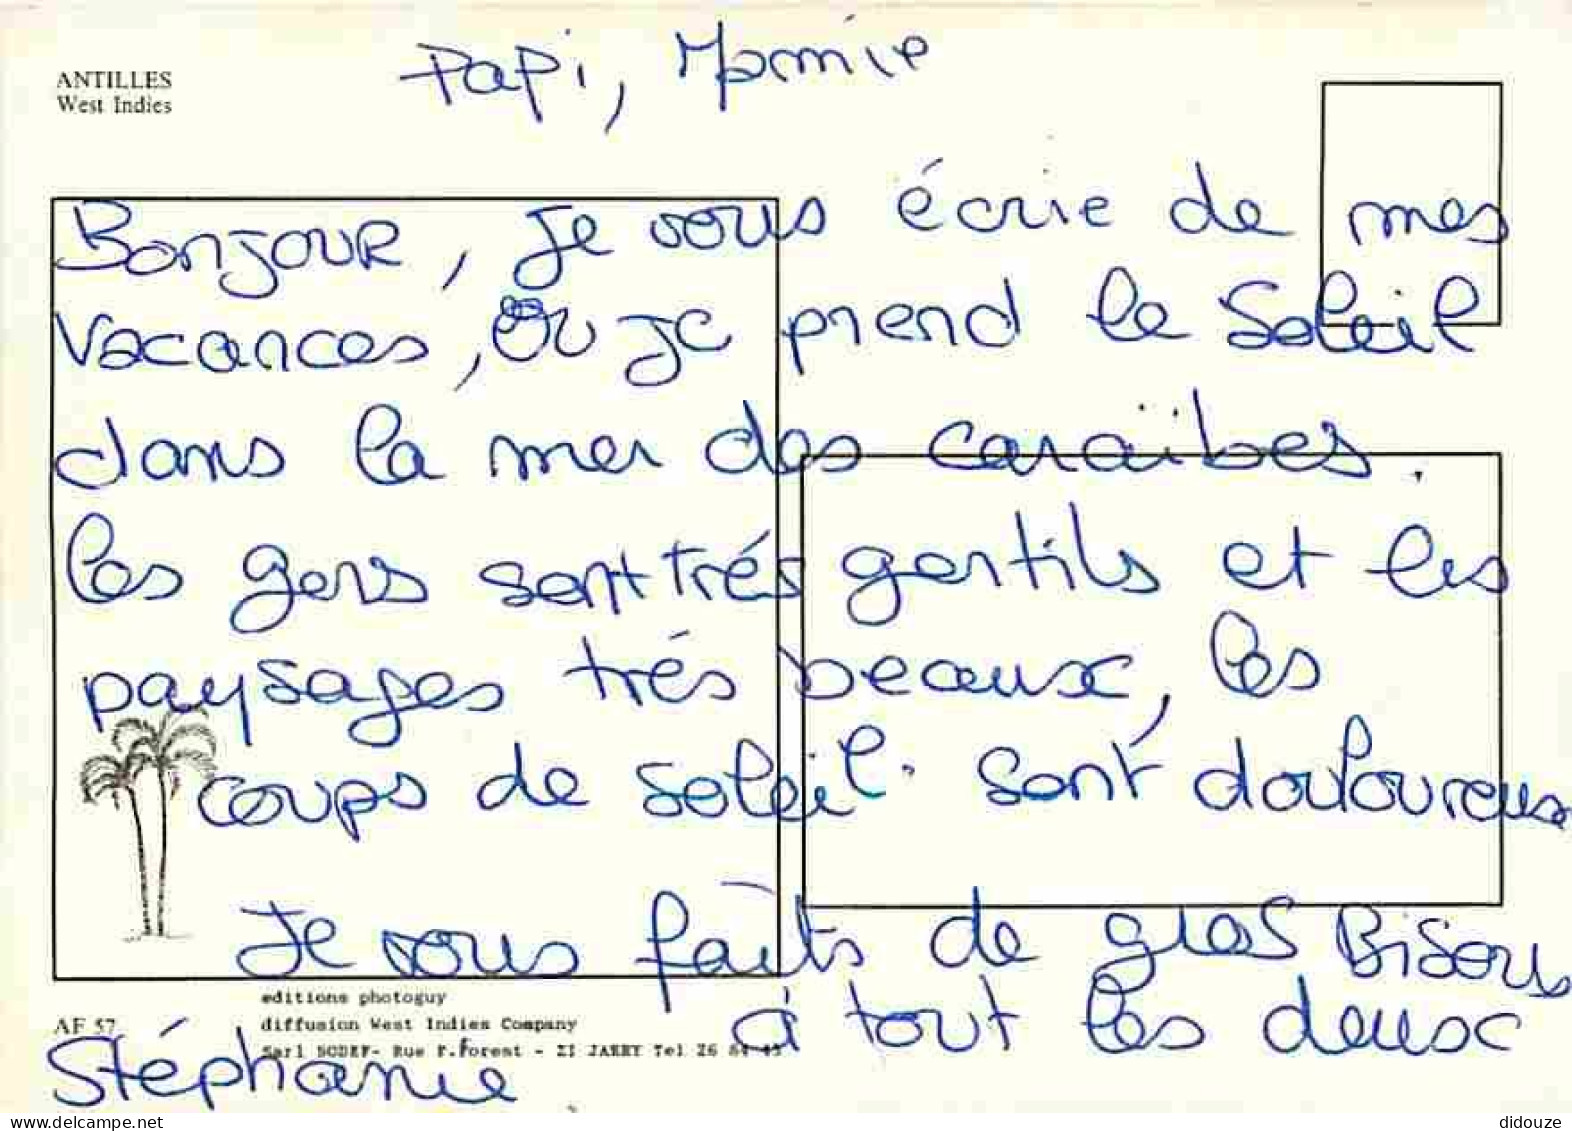 ANTILLES
West Indies
Papi, Mamie
Bonjour, je vous écrie de mes
vacances, où je prend le soleil
dans la mer des caraïbes.
les gens sont trés gentils et les
paysages trés beaux, les
coups de soleil sont douloureux
Je vous faits de gros Bisous
à tout les deux
Stéphanie
AF 57
editions photoguy
diffusion West Indies Company
Sarl SODEF- Rue F.Forest - ZI JARRY Tel 26 64 45
www.delcampe.net
didouze